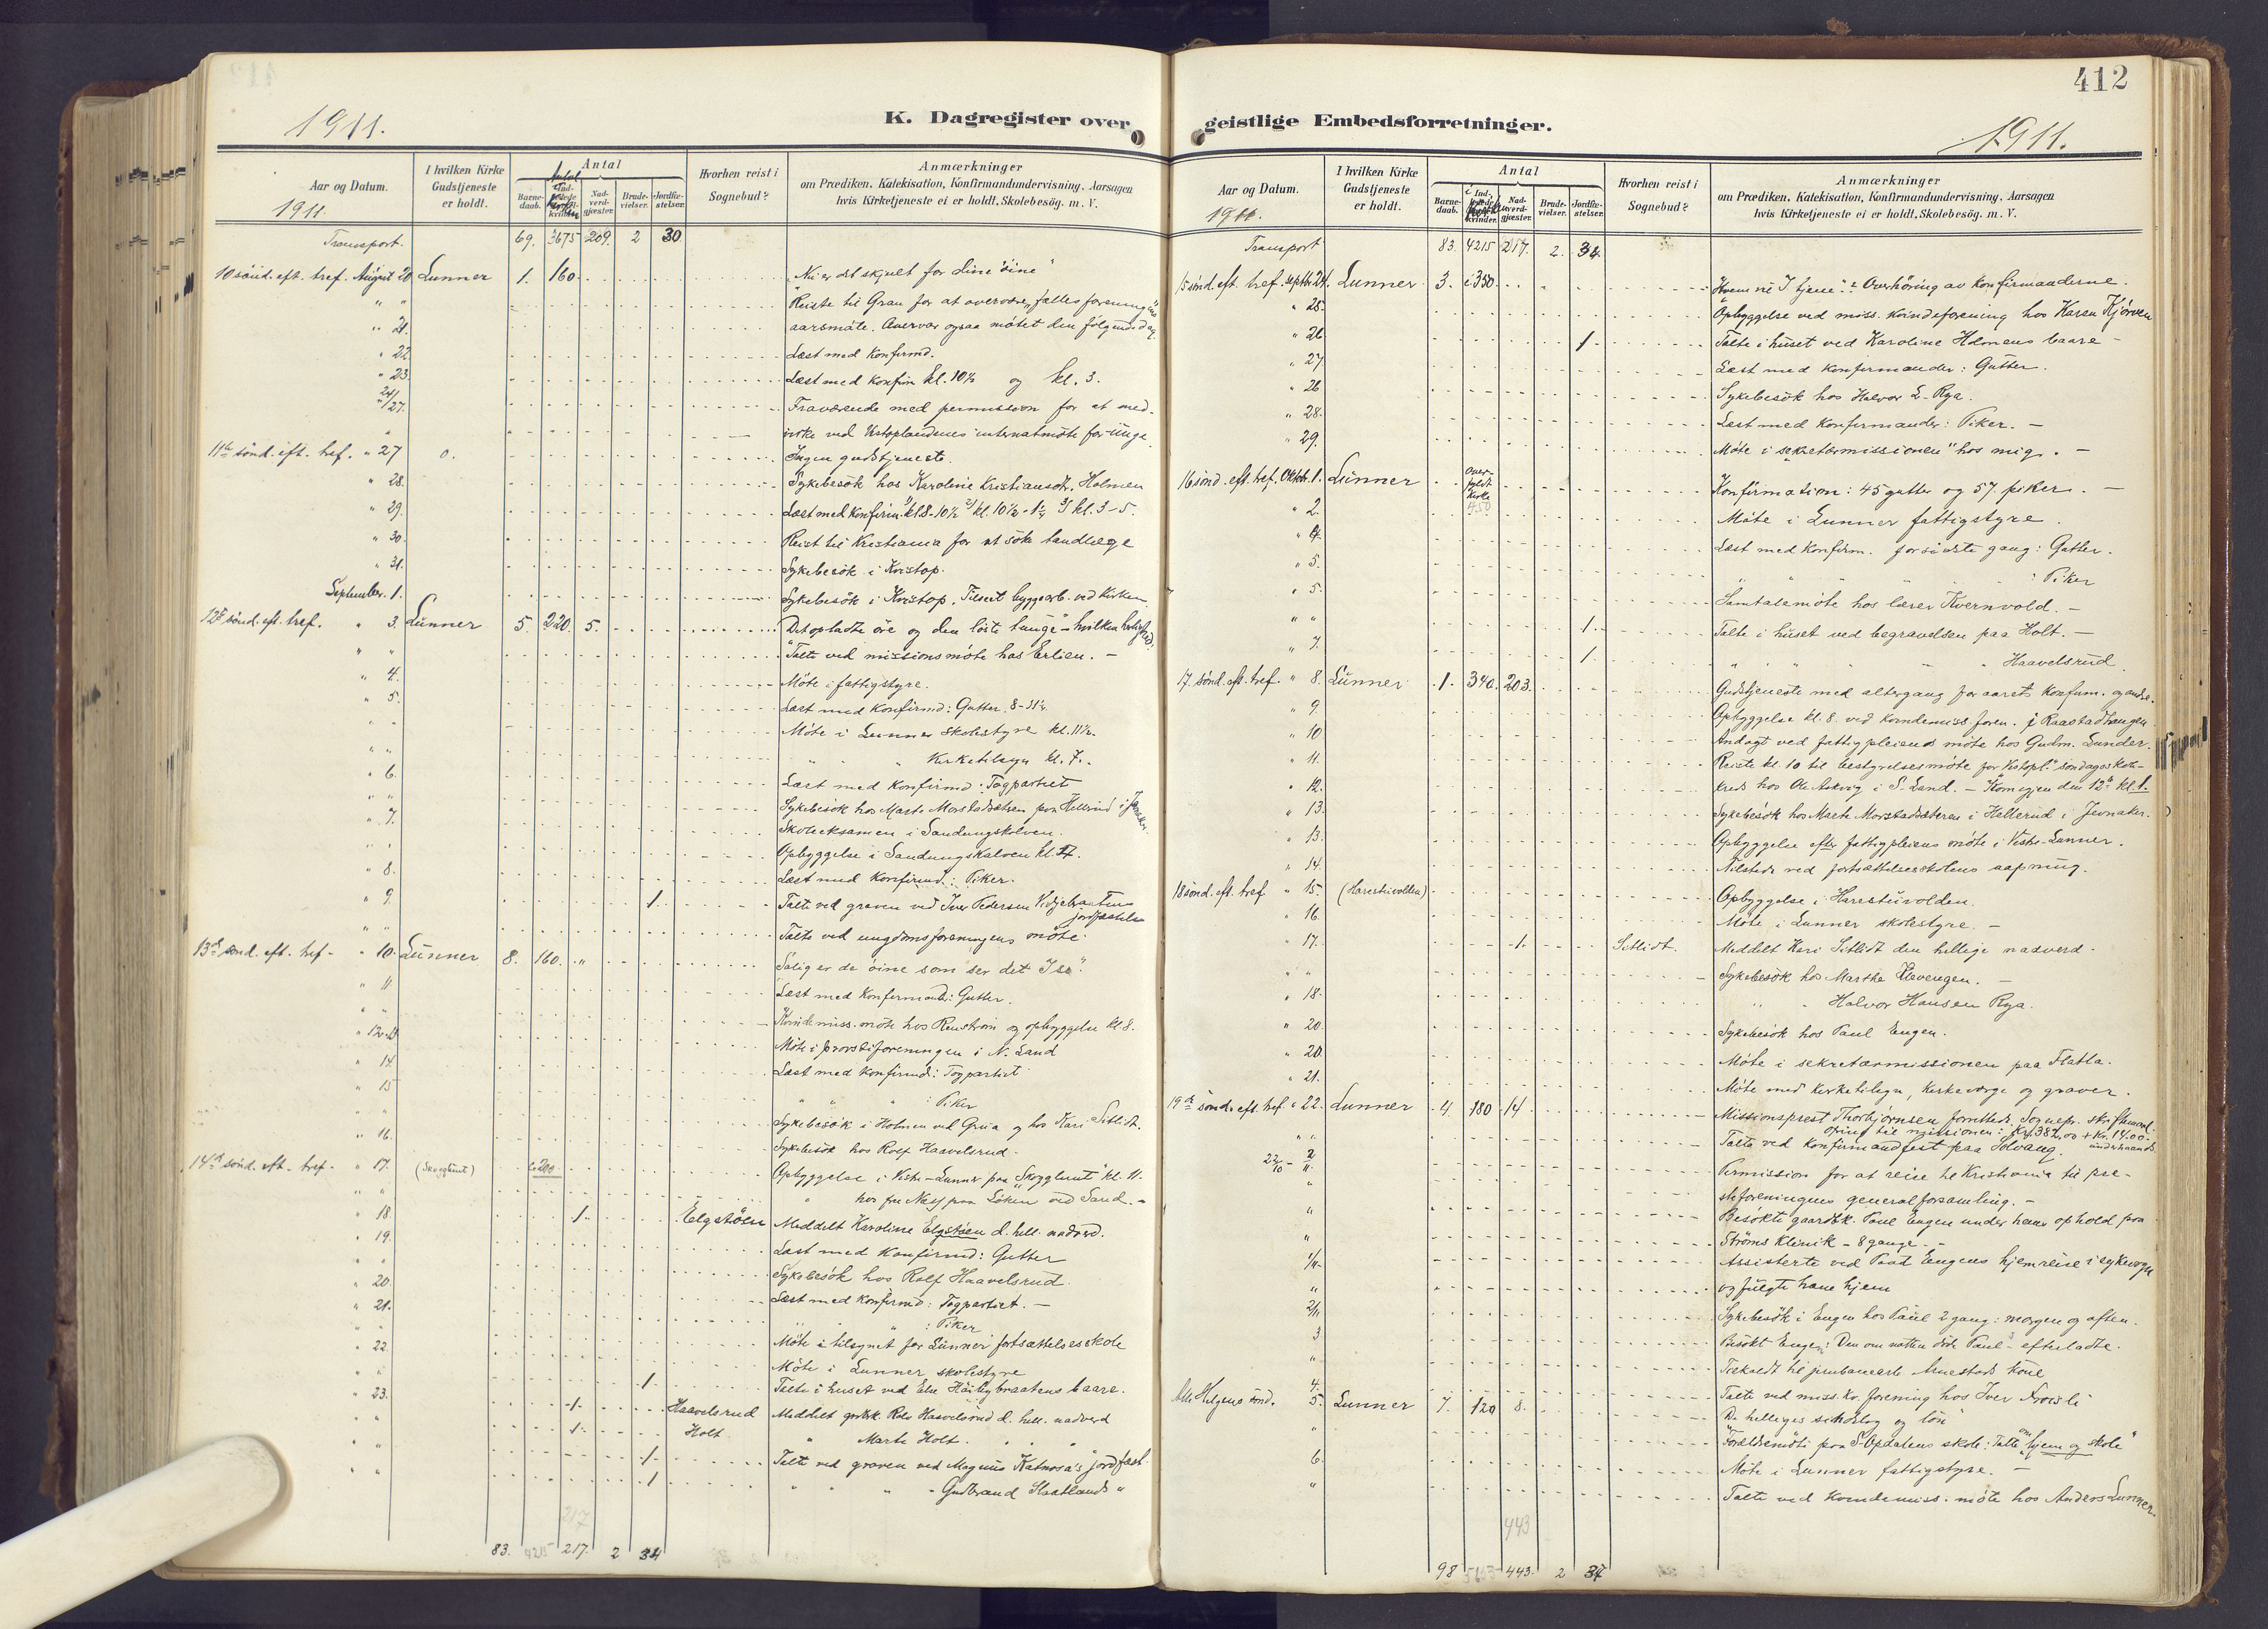 1911.
K. Dagregister over
Aar og Datum. 1911.
I hvilken Kirke Gudstjeneste er holdt.
Antal
Barne-daab.
Nad-verd-gjester.
Brude-vielser.
Jordfæ-stelser.
Hvorhen reist i Sognebud?
Anmærkninger
om Prædiken, Katekisation, Konfirmandundervisning, Aarsagen
hvis Kirketjeneste ei er holdt, Skolebesög. m. V.
Transport. 69. 3675 209. 2 30
10 sönd. eft. tref. August 20 Lunner 1. 160. "Nu er det skjult for dine öine"
" " Reiste til Gran for at overvære "fællesforeningens
" 21. aarsmöte. Overvar ogsaa mötet den fölgende dag.
" 22. Læst med konfirmd.
" 23. Læst med konfirm kl. 10½ og kl. 3.
" 24/27. Fraværende med permission for at med-
virke ved Vestoplandenes internatmöte for unge.
11te sönd. eft. tref. " 27 0. Ingen gudstjeneste.
" 28. Sykebesök hos Karoline Kristiansdtr. Holmen
" 29. Læst med konfirm. 1) kl. 8-10½ 2) kl. 10½-1¼ 3) kl. 3-5.
" 30. Reist til Kristiania for at söke tandlæge
" 31. Sykebesök i Kristop.
September. 1. Sykebesök i Kristop. Tilseet byggearb. ved kirken
12te sönd. eft. tref. " 3. Lunner 5. 220. 5. Det opladte öre og den löste tunge - hvilken herlighed!
" " Talte ved missionsmöte hos Erlien. -
" 4. Möte i fattigstyre.
" 5. Læst med konfirmd: Gutter. 8-11¼.
" " Möte i Lunner skolestyre kl. 11½.
" " " " Kirketilsyn kl. 7.
" 6. Læst med konfirmd: Togpartiet
" " Sykebesök hos Marte Morstadsætren paa Hellerud i Jevnaker.
" 7. Skoleeksamen i Sandungskalven.
" " Opbyggelse i Sandungskalven kl. 7.
" 8. Læst med konfirmd.: Piker.
" 9. 1. Talte ved graven ved Iver Pedersen jordfæstelse
" " Talte ved ungdomsforeningens möte.
13de sönd. eft. tref - " 10. Lunner 8. 160. " "Salig er de öine som ser det I ser".
" 11 Læst med konfermand: Gutter.
" " Kvindemiss. möte hos Renström og opbyggelse kl. 8.
" 12-13 Möte i provstiforeningen i N. Land
" 14. Læst med konfirmd: Togpartiet
" 15 " " " : Piker
" " Sykebesök i Holmen ved Grua og hos Kari Sitlidt.
" 16. Sykebesök hos Rolf Haavelsrud.
14de sönd. eft. tref - " 17. (Skogglimt) c. 200 Opbyggelse i Vestre-Lunner paa "Skogglimt" kl. 11.
" " " hos fru Næss paa Löken ved Sand. -
" 18. 1. Elgstöen Meddelt Karoline Elgstöen d. hell. nadverd.
" 19. Læst med konfirmd: Gutter
" " Sykebesök hos Rolf Haavelsrud.
" 20. Læst med konfirmd: Togpartiet. -
" 21. " " " : Piker
" " Möte i tilsynet for Lunner fortsættelsesskole
" 22. Möte i Lunner skolestyre
" " 1. Talte i huset ved Else baare.
" 23. 1. Haavelsrud Meddelt Rolv Haavelsrud d. hell. nadverd
" " 1. Holt " Marte Holt. " " "
" " 1. Talte ved graven ved Magnus Katnosa's jordfæst.
" " 1 " " " " Gudbrand Staatlands "
217
83. 4215 217. 2 34

412
geistlige Embedsforretninger.
1911.
Aar og Datum. 1911.
I hvilken Kirke Gudstjeneste er holdt.
Antal
Barne-daab.
Nad-verd-gjester.
Brude-vielser.
Jordfæ-stelser.
Hvorhen reist i Sognebud?
Anmærkninger
om Prædiken, Katekisation, Konfirmandundervisning, Aarsagen
hvis Kirketjeneste ei er holdt, Skolebesög. m. V.
Transport 83. 4215 217. 2. 34.
15 sönd. eft. tref. septbr. 24. Lunner 3. c. 350. "Hvem vil I tjene"? Overhöring av konfirmanderne.
" 25. Opbyggelse ved miss. kvindeforening hos Karen Kjörven
" 26 1. Talte i huset ved Karoline Holmens baare -
" 27. Læst med konfirmander: Gutter.
" 26 Sykebesök hos Halvor L. Rya.
" 28. Læst med konfirmander: Piker. -
" 29. Möte i "sekretærmissionen" hos mig. -
16 sönd. eft. tref. Oktobr. 1. Lunner Over-fyldt kirke 450 Konfirmation: 45 gutter og 57 piker. -
" 2. Möte i Lunner fattigstyre.
" 4. Læst med konfirm. for sidste gang: Gutter.
" 5. " " " " : Piker
" 5. Samtalemöte hos lærer Kvernvold. -
" " 1. Talte i huset ved begravelsen paa Holt. -
" 7. 1. " " " " " Haavelsrud
17. sönd. eft. tref. " 8. Lunner 1. 340. 203. Gudstjeneste med altergang for aarets konfirm. og andre.
" 9. Opbyggelse kl. 8. ved kvindemiss. foren. i Raastadhaugen
" 10 Andagt ved fattigpleiens möte hos Gudm. Lunder.
" 11. Reiste kl. 10 til bestyrelsesmöte for Vestopl. söndagsskole-
" 12. kreds hos Ole Askvig i S. Land. - Kom igjen den 12te kl. 1.
" 13. Sykebesök hos Marte Morstadsæteren i Hellerud i Jevnaker.
" 13. Opbyggelse efter fattigpleiens möte i Vestre-Lunner.
" 14. Tilstede ved fortsættelsesskolens aapning.
18 sönd. eft. tref " 15. (Harestuvolden) Opbyggelse i Harestuvolden.
" 16. Möte i Lunner skolestyre. -
" 17. 1. Sitlidt. Meddelt Kari Sitlidt den hellige nadverd.
" " Sykebesök hos Marthe Klevengen. -
" 18. " " Halvor Hansen Rya.
" 20 Sykebesök hos Paul Engen.
" 20. Möte i sekretærmissionen paa Flatla.
" 21. Möte med kirketilsyn, kirkeverge og graver.
19de sönd. eft. tref. " 22. Lunner 4. 180 14. Missionsprest Thorbjörnsen forrettet. Sognepr. skriftemaal.
Ofring til missionen: Kr. 382,00 + Kr. 14.00. underhaanden
" " Talte ved konfirmandfest paa Solvang.
22/10 - 2/11 Permission for at reise til Kristiania til pre-
" steforeningens generalforsamling. -
" Besökte gaardbr. Paul Engen under hans ophold paa
" Ströms klinik - 8 gange. -
1/11. Assisterte ved Paul Engens hjemreise i sykevogn
" og fulgte ham hjem
2/11 Sykebesök i Engen hos Paul 2 gang: morgen og aften.
3 Besökt Engen: Den om natten döde Paul's efterladte.
" Tilkaldt til jernbanearb. Arnestads kone
4. Talte ved miss. kv. forening hos Iver
Alle Helgens sönd. 5. Lunner 7. 120 8. "De helliges og lön"
" "Forældremöte paa S. Opdalens skole: Talte om "hjem og skole"
6. Möte i Lunner fattigstyre. -
" Talte ved kvindemiss. möte hos Anders Lunner.
443
98 443. 2 37